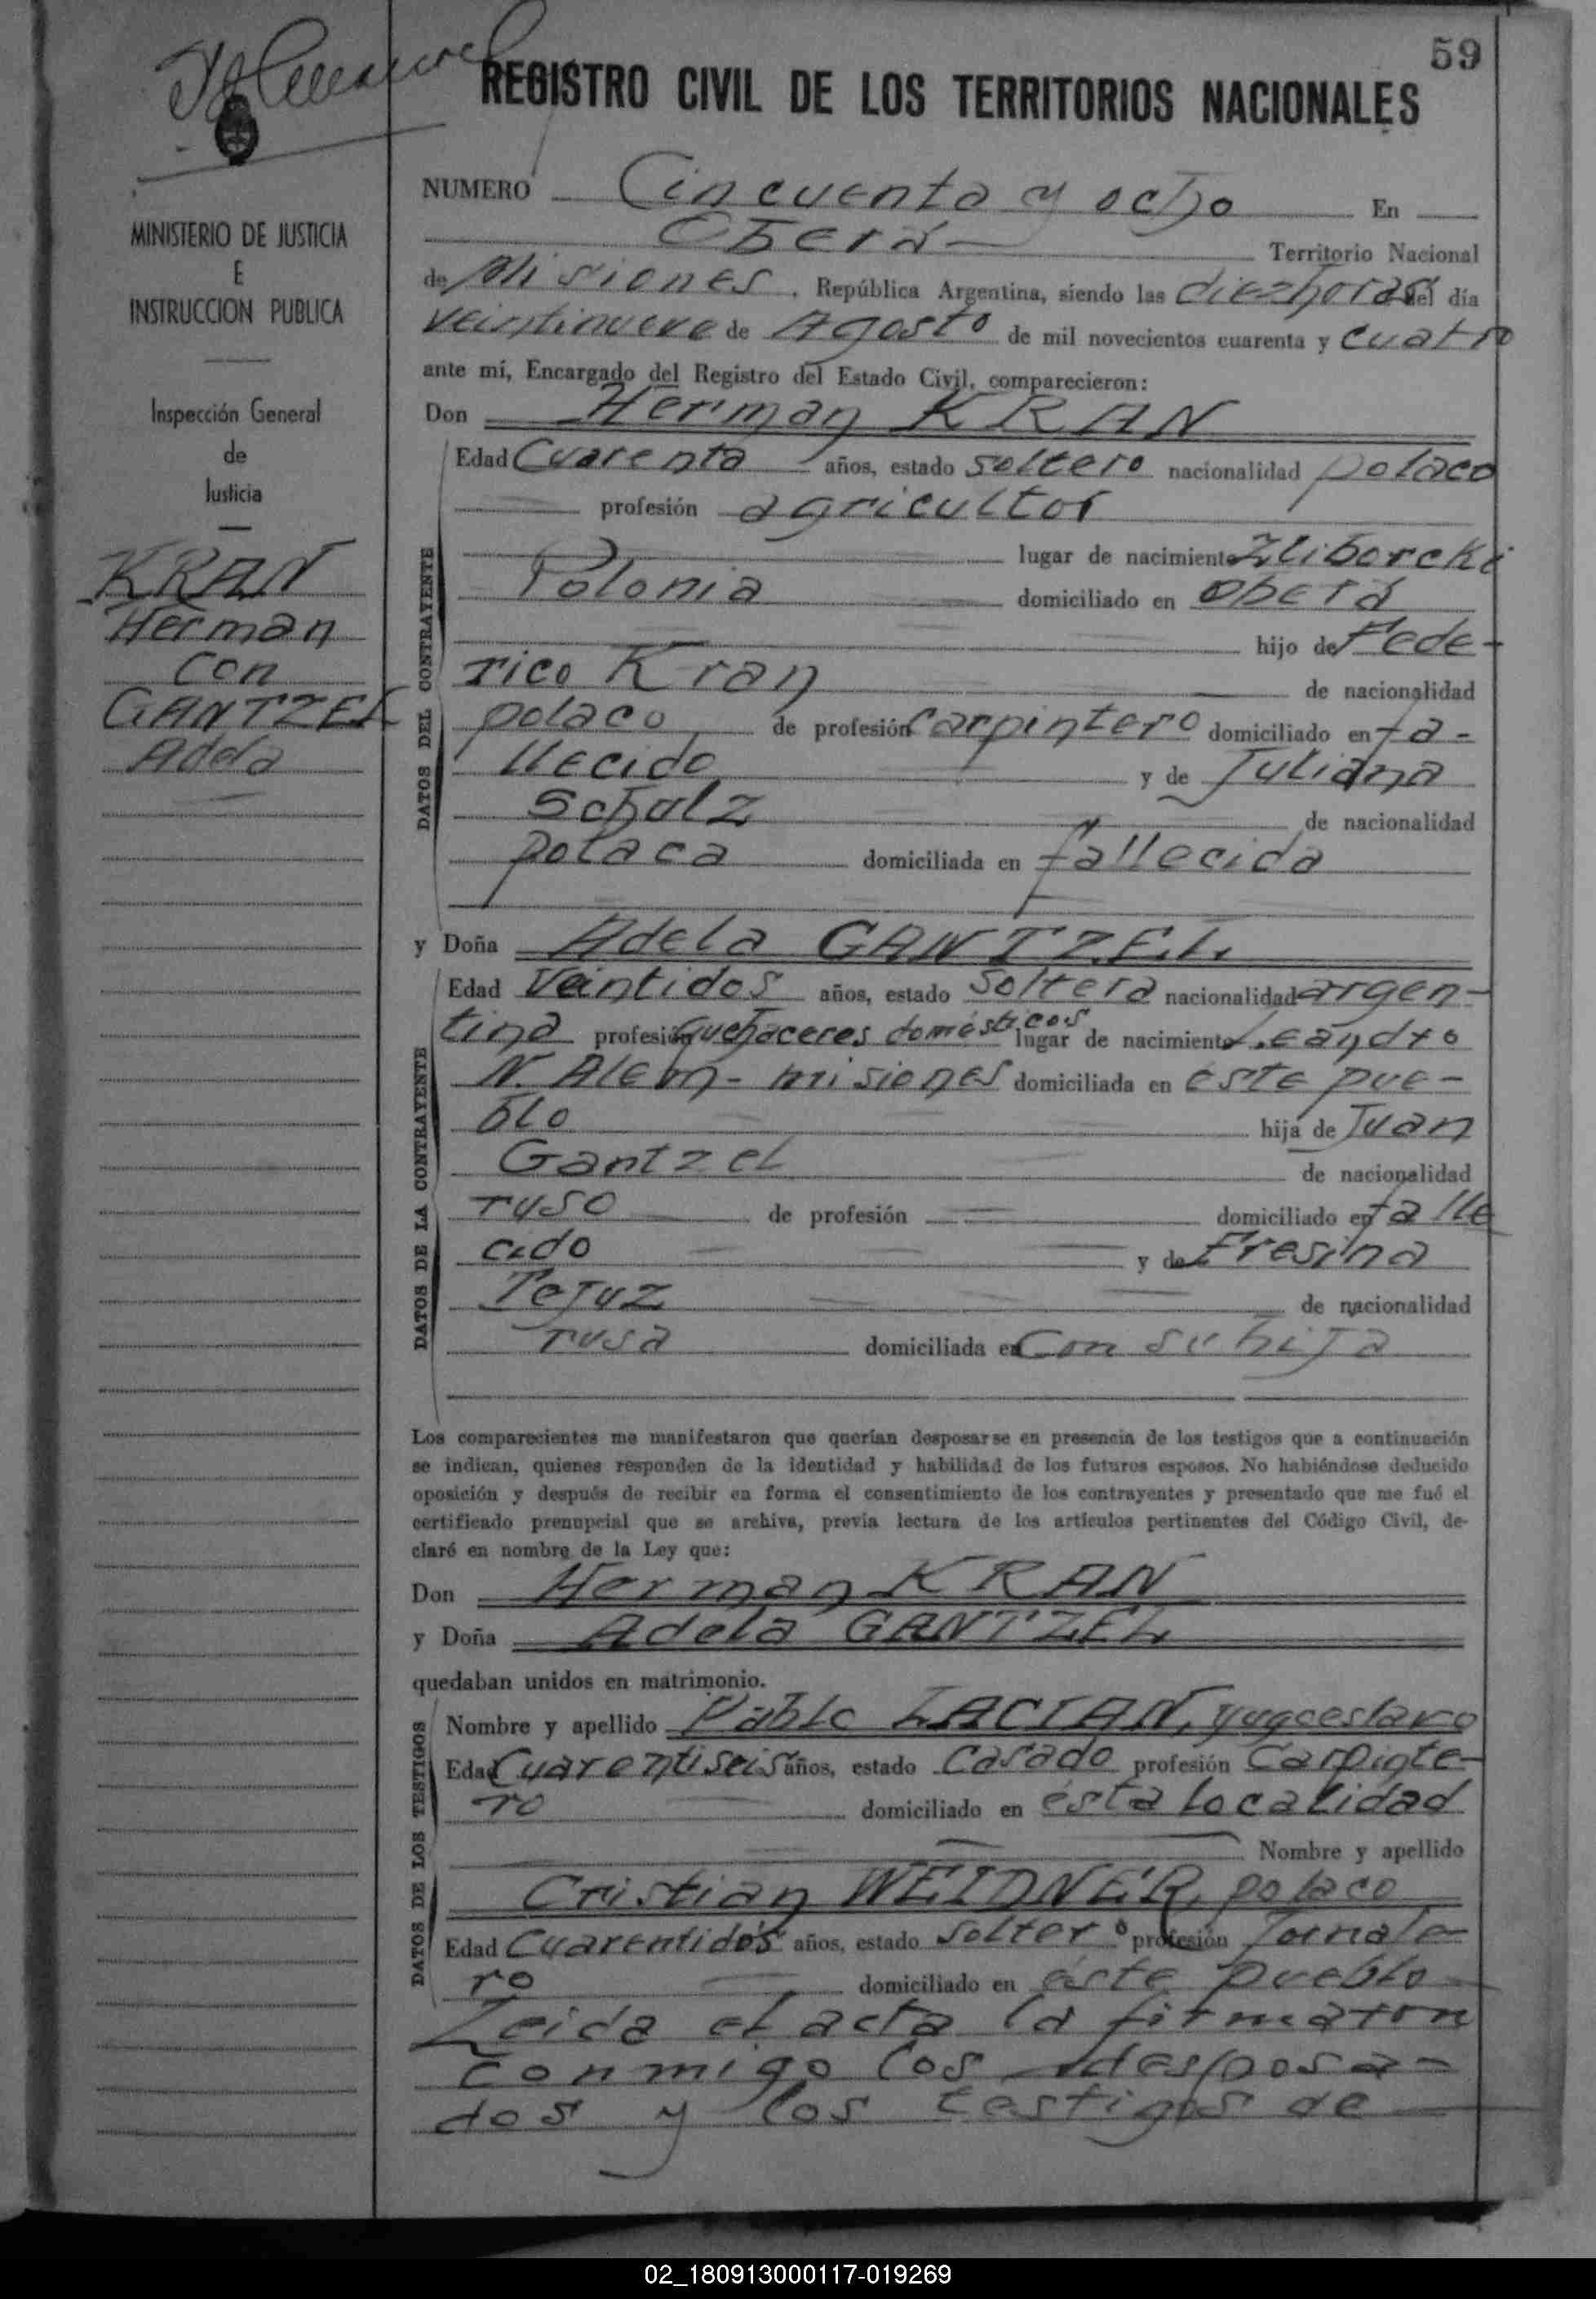 59
REGISTRO CIVIL DE LOS TERRITORIOS NACIONALES
MINISTERIO DE JUSTICIA
E
INSTRUCCION PUBLICA
Inspección General
de
Justicia
KRAN
Herman
con
GANTZEL
Adela
NUMERO Cincuenta y ocho En
Oberá Territorio Nacional
de Misiones, República Argentina, siendo las diez horas del día
veintinueve de Agosto de mil novecientos cuarenta y cuatro
ante mí, Encargado del Registro del Estado Civil, comparecieron:
Don Herman KRAN
DATOS DEL CONTRAYENTE
Edad Cuarenta años, estado soltero nacionalidad polaco
profesión agricultor
lugar de nacimiento Zliborcki
Polonia domiciliado en Oberá
hijo de Fede-
rico Kran de nacionalidad
polaco de profesión carpintero domiciliado en fa-
llecido y de Juliana
Scholz de nacionalidad
polaca domiciliada en fallecida
y Doña Adela GANTZEL
DATOS DE LA CONTRAYENTE
Edad Veintidos años, estado Soltera nacionalidad argen-
tina profesión quehaceres domésticos lugar de nacimiento Leandro
N. Alem - misiones domiciliada en éste pue-
blo hija de Juan
Gantzel de nacionalidad
ruso de profesión domiciliado en falle
cido y de Fresina
de nacionalidad
rusa domiciliada en con su hija
Los comparecientes me manifestaron que querían desposarse en presencia de los testigos que a continuación
se indican, quienes responden de la identidad y habilidad de los futuros esposos. No habiéndose deducido
oposición y después de recibir en forma el consentimiento de los contrayentes y presentado que me fué el
certificado prenupcial que se archiva, previa lectura de los artículos pertinentes del Código Civil, de-
claré en nombre de la Ley que:
Don Herman KRAN
y Doña Adela GANTZEL
quedaban unidos en matrimonio.
DATOS DE LOS TESTIGOS
Nombre y apellido Pablo LACIAN, yugoeslavo
Edad Cuarentiseis años, estado Casado profesión Carpinte-
ro domiciliado en ésta localidad
Nombre y apellido
Cristian WEIDNER, polaco
Edad Cuarentidós años, estado soltero profesión Jornale-
ro domiciliado en éste pueblo
Leida el acta la firmaron
conmigo los desposa-
dos y los testigos de
02_180913000117-019269